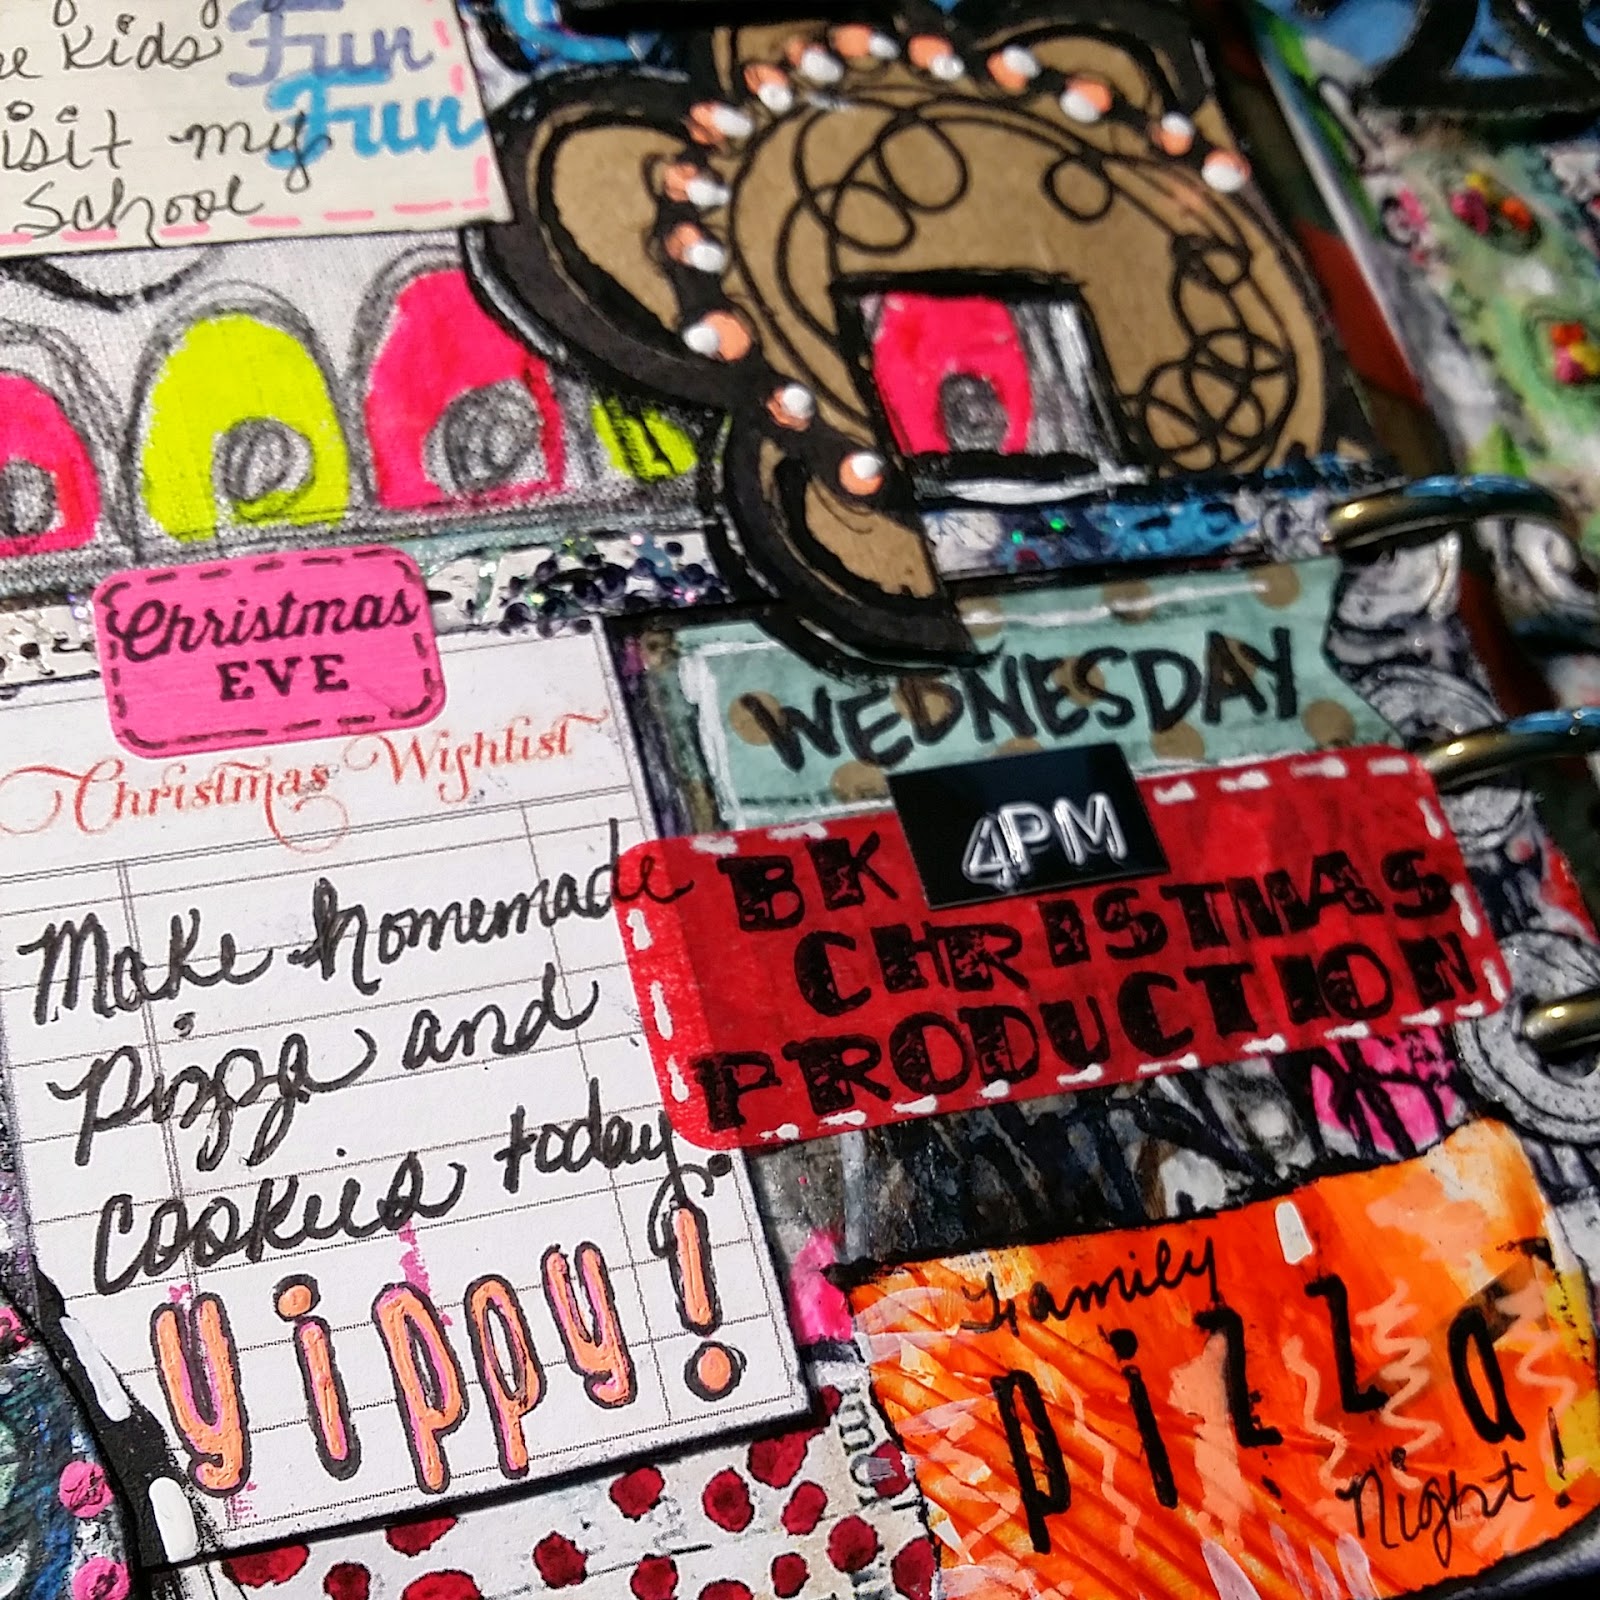 Kids Fun
visit my Fun
School
Christmas
EVE
Christmas Wishlist
Make homemade
pizza and
cookies today
yippy!
WEDNESDAY
4PM
BK
CHRISTMAS
PRODUCTION
Family
pizza
Night!